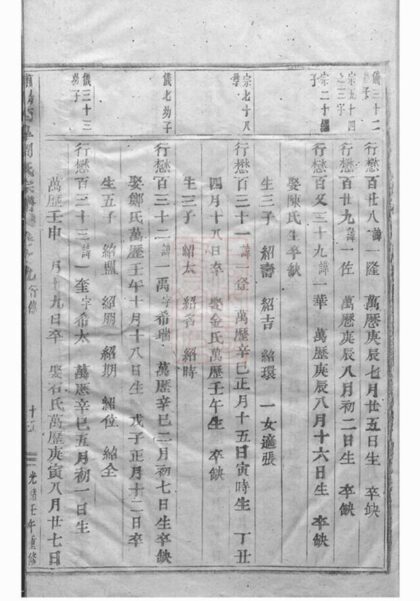 儀三十二子
行懋百廿八諱一隆 萬曆庚辰七月廿五日生 卒缺
宗五十四之三子
行懋百廿九諱一佐 萬曆庚辰八月初二日生 卒缺
宗二十繼子
行懋百又三十九諱一華 萬曆庚辰八月十六日生 卒缺
娶陳氏生卒缺
生三子 紹壽 紹吉 紹環 一女適張
宗七十八
行懋百三十一諱一 萬曆辛巳正月十五日寅時生 丁丑
四月十八日卒 娶金氏萬曆壬午生 卒缺
生三子 紹太 紹 紹時
儀七幼子
行懋百三十二諱一禹字希瑞 萬曆辛巳二月初七日生卒缺
娶鄭氏萬曆壬午十月十八日生 戊子正月十二日卒
生五子 紹 紹 紹期 紹位 紹全
儀三十三幼子
行懋百三十三諱一奎字希太 萬曆辛巳五月初一日生
萬曆壬申 月十九日卒 娶石氏萬曆庚寅八月廿七日
光緒壬午重修